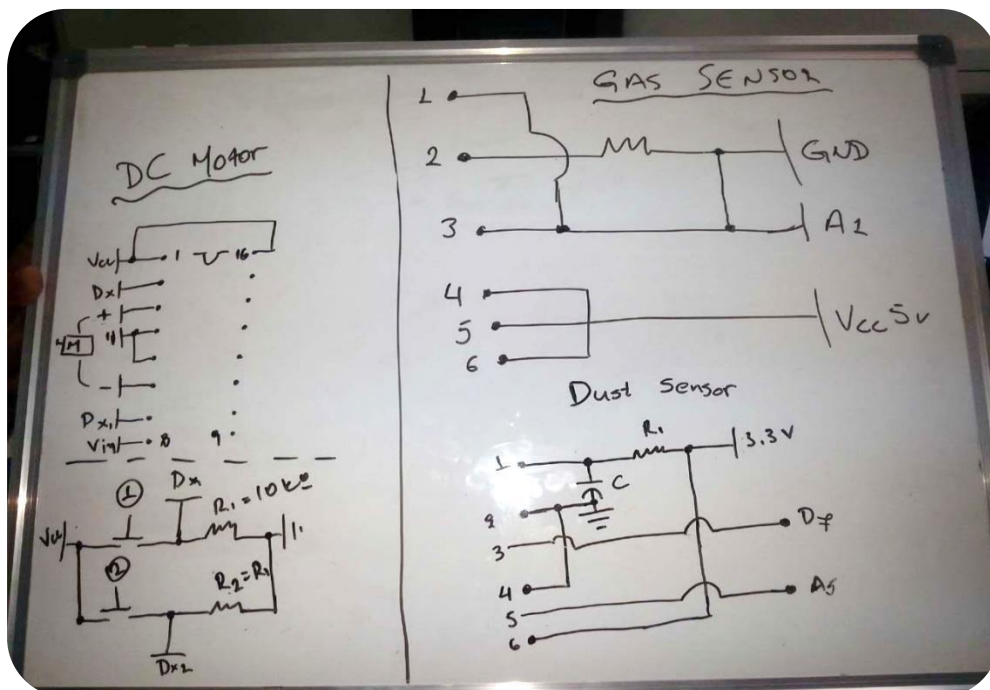 DC Motor
Vcc 1 16
Dx
+
M
-
Dx1
Vin 8 9
1
Dx
R1=10k
Vcc
2
R2=R1
Dx2
GAS SENSOR
1
2
GND
3
A1
4
5
Vcc 5v
6
Dust Sensor
R1
3.3V
1
C
2
3
D7
4
5
A5
6